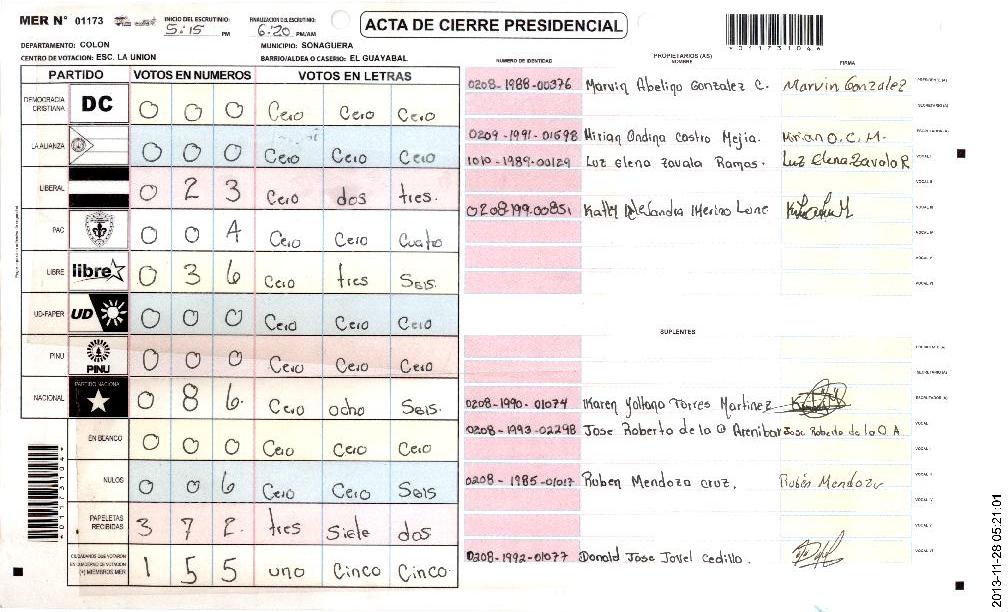 MER N° 01173 INICIO DEL ESCRUTINIO: 5:15 PM FINALIZACIÓN DEL ESCRUTINIO: 6:20 PM/AM ACTA DE CIERRE PRESIDENCIAL
DEPARTAMENTO: COLON MUNICIPIO: SONAGUERA
CENTRO DE VOTACION: ESC. LA UNION BARRIO/ALDEA O CASERIO: EL GUAYABAL
PARTIDO VOTOS EN NUMEROS VOTOS EN LETRAS
DEMOCRACIA CRISTIANA DC 0 0 0 Cero Cero Cero
LA ALIANZA 0 0 0 Cero Cero Cero
LIBERAL 0 2 3 Cero dos tres.
PAC 0 0 4 Cero Cero Cuatro
LIBRE libre 0 3 6 Cero tres Seis.
UD-FAPER UD 0 0 0 Cero Cero Cero
PINU PINU 0 0 0 Cero Cero Cero
NACIONAL PARTIDO NACIONAL 0 8 6. Cero ocho Seis.
EN BLANCO 0 0 0 Cero Cero Cero
NULOS 0 0 6 Cero Cero Seis
PAPELETAS RECIBIDAS 3 7 2. tres siete dos
CIUDADANOS QUE VOTARON EN CUADERNO DE VOTACION (+) MIEMBROS MER 1 5 5 uno Cinco Cinco
NUMERO DE IDENTIDAD PROPIETARIOS (AS) NOMBRE FIRMA
0208-1988-00376 Marvin Abelino Gonzalez C. Marvin Gonzalez PRESIDENTE (A)
SECRETARIO (A)
0209-1991-01698 Mirian Ondina Castro Mejia. Mirian O. C. M. ESCRUTADOR (A)
1010-1989-00129 Luz Elena Zavala Ramos. Luz Elena Zavala R VOCAL I
VOCAL II
0208-199.00851 VOCAL III
VOCAL IV
VOCAL V
VOCAL VI
SUPLENTES
PRESIDENTE (A)
SECRETARIO (A)
0208-1990-01074 Karen Yolana Torres Martinez ESCRUTADOR (A)
0208-1993-02298 Jose Roberto de la O Arenibar Jose Roberto de la O A. VOCAL I
VOCAL II
0208-1985-01017 Ruben Mendoza Cruz. Rubén Mendoza VOCAL III
VOCAL IV
VOCAL V
0208-1992-01077 Donald Jose Jovel Cedillo. VOCAL VI
2013-11-28 05:21:01